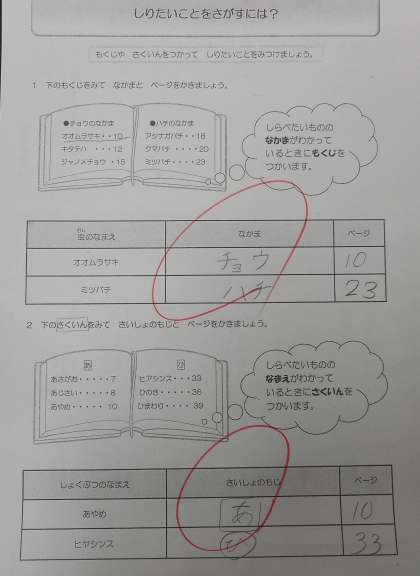 しりたいことをさがすには？
もくじや さくいんをつかって しりたいことをみつけましょう。
1 下のもくじをみて なかまと ページをかきましょう。
●チョウのなかま
オオムラサキ・・10
キタテハ ・・・12
ジャノメチョウ・15
●ハチのなかま
アシナガバチ・・18
クマバチ・・・・20
ミツバチ・・・・23
しらべたいものの
なかまがわかって
いるときにもくじを
つかいます。
虫のなまえ なかま ページ
オオムラサキ チョウ 10
ミツバチ ハチ 23
2 下のさくいんをみて さいしょのもじと ページをかきましょう。
あ
あさがお・・・・・7
あじさい・・・・・8
あやめ・・・・・10
ひ
ヒアシンス・・・33
ひのき・・・・・36
ひまわり・・・・39
しらべたいものの
なまえがわかって
いるときにさくいんを
つかいます。
しょくぶつのなまえ さいしょのもじ ページ
あやめ あ 10
ヒヤシンス ひ 33